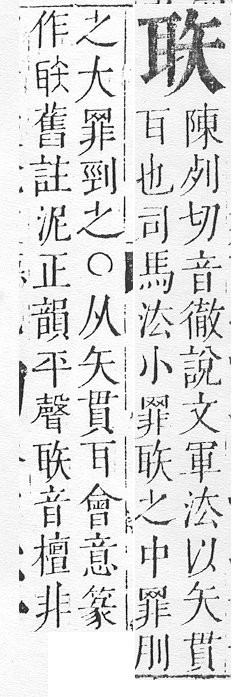 聅
陳列切音徹說文軍法以矢貫
耳也司馬法小罪聅之中罪刖
之大罪剄之○从矢貫耳會意篆
作舊註泥正韻平聲聅音檀非